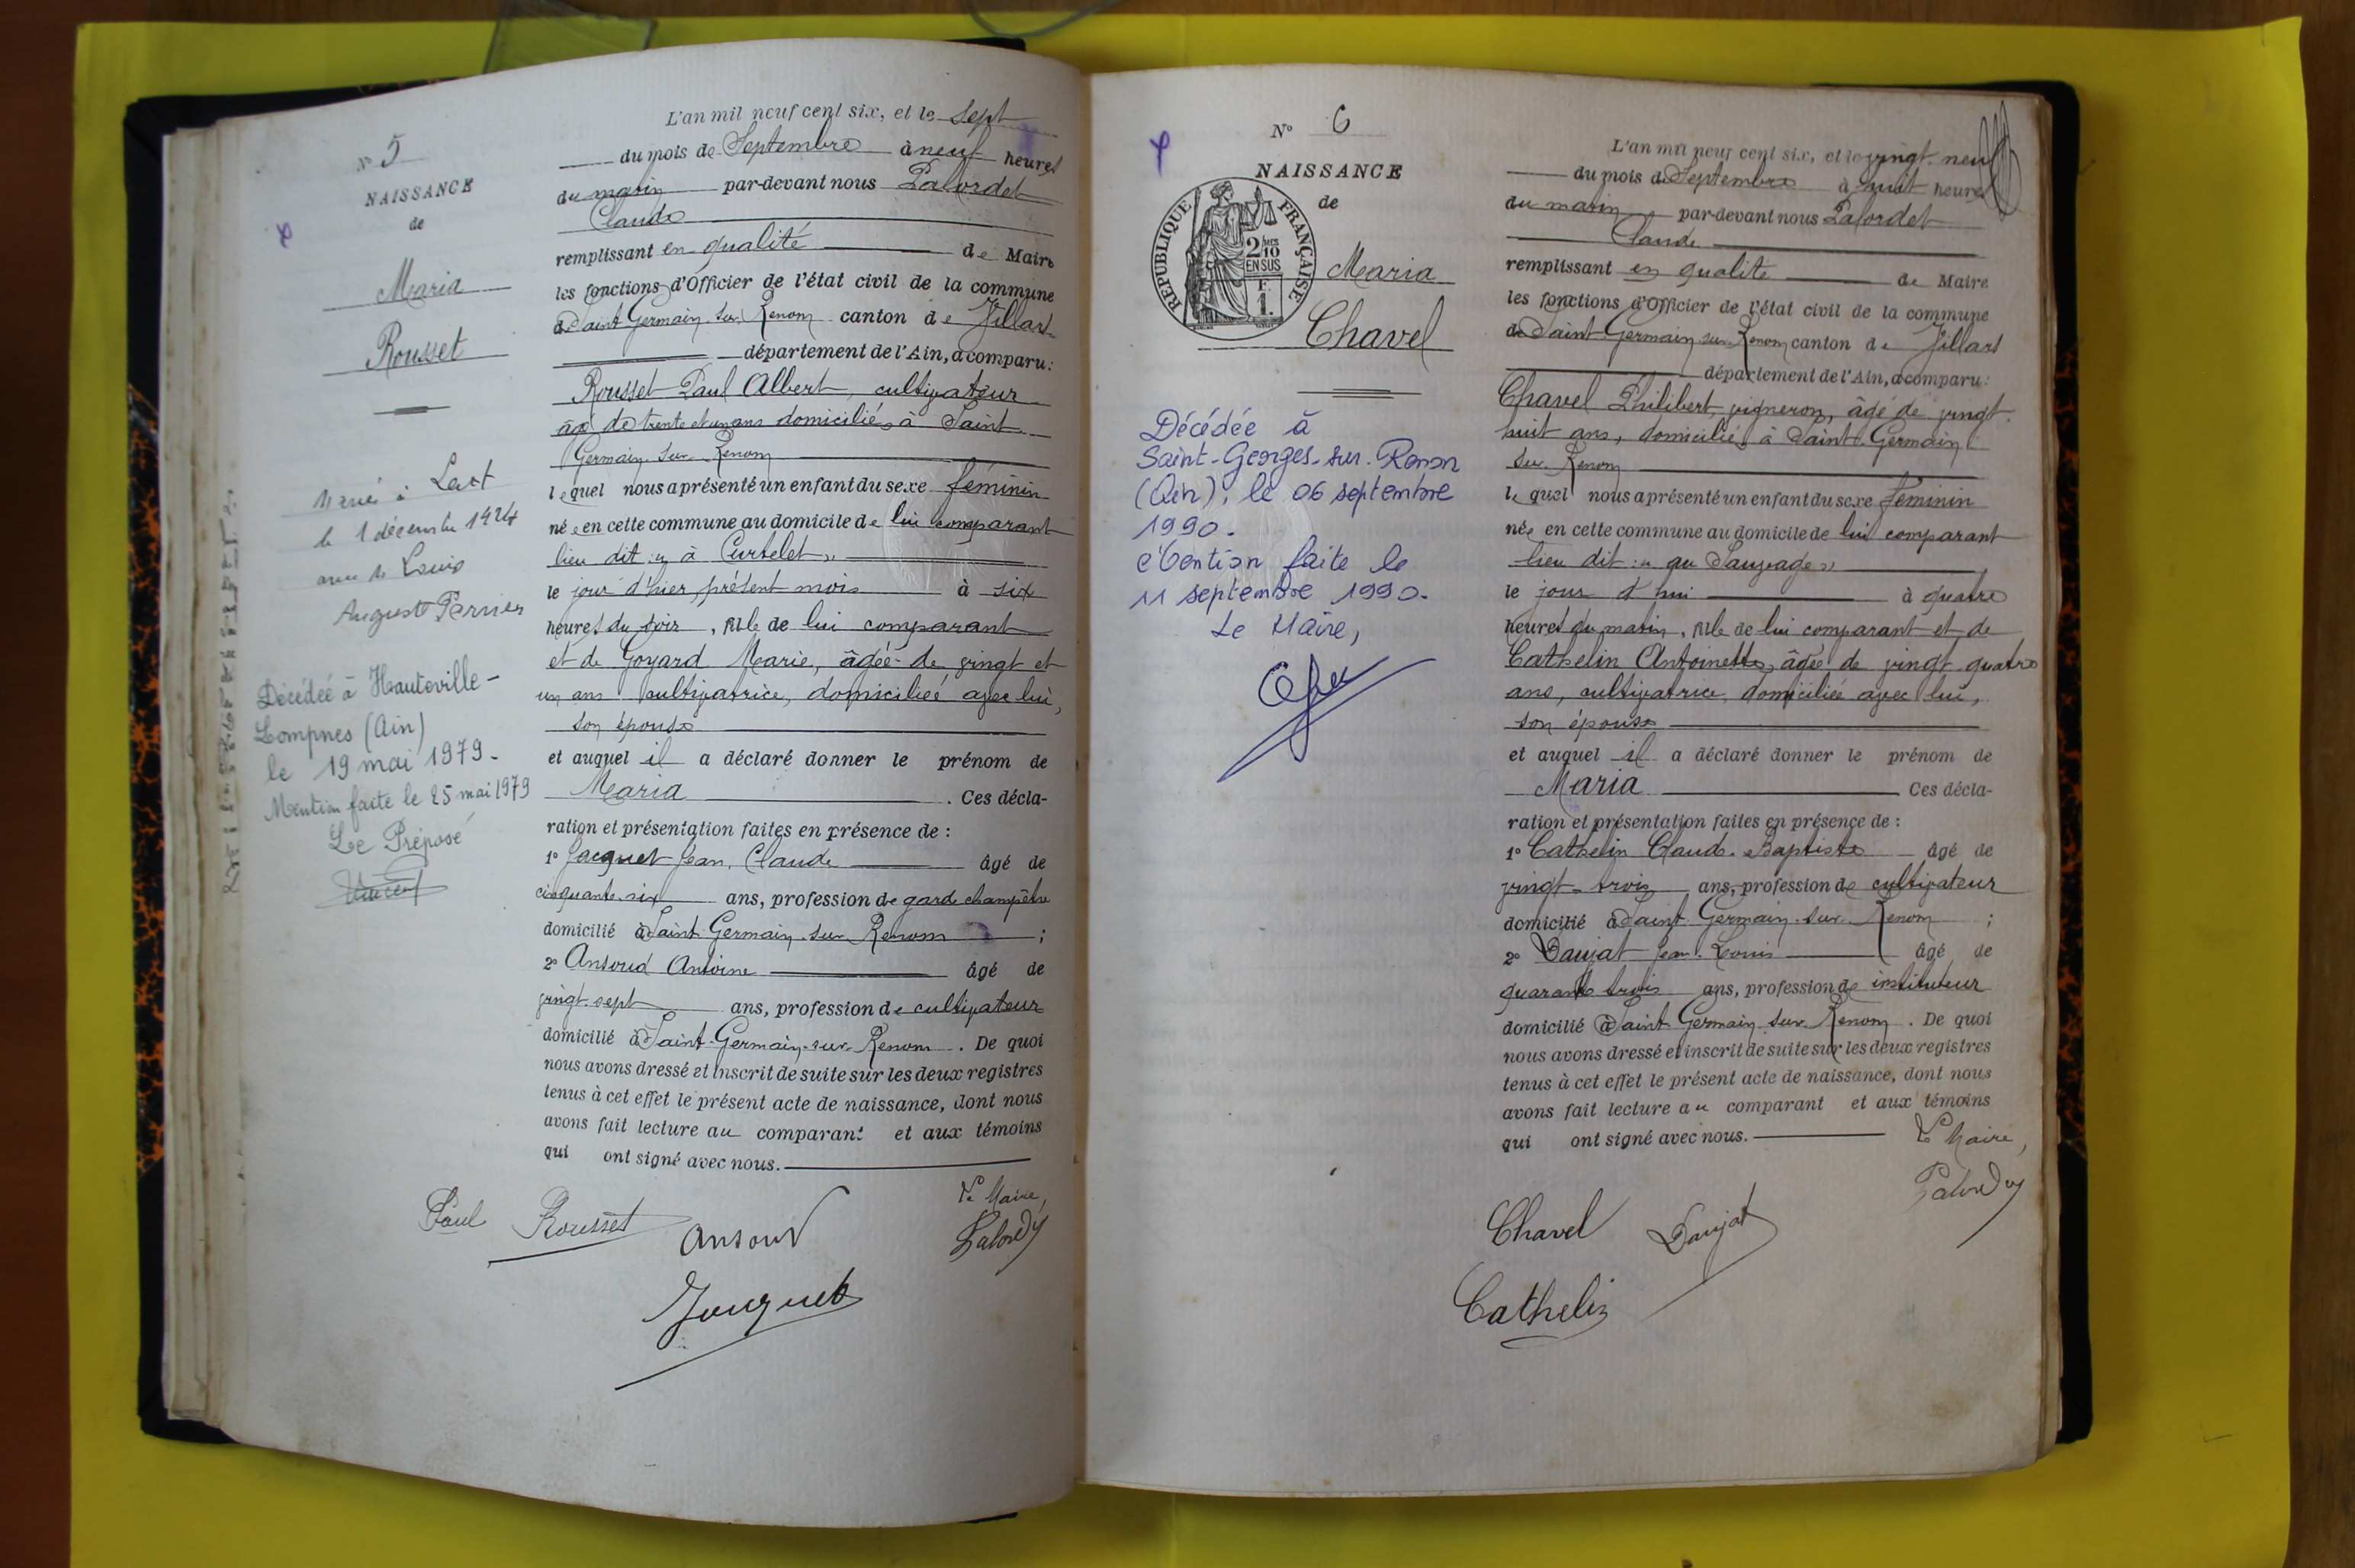 N° 5
NAISSANCE
de
Maria
Rousset
Marié à
le 1 décembre 1924
avec Louis
Auguste Perrier
Décédée à Hauteville-
Lompnes (Ain)
le 19 mai 1979-
Mention faite le 25 mai 1979
Le Préposé
L'an mil neuf cent six, et le sept
du mois de Septembre à neuf heures
du matin par-devant nous Palordet
Claude
remplissant en qualité de Maire
les fonctions d'Officier de l'état civil de la commune
de Saint Germain-sur-Renom canton de Villars
département de l'Ain, a comparu :
Rousset Paul Albert, cultivateur
âgé de trente et un ans domicilié à Saint
Germain-sur-Renom
lequel nous a présenté un enfant du sexe féminin
née en cette commune au domicile de lui comparant
lieu dit : « à Curtelet »
le jour d'hier, présent mois à six
heures du soir, fille de lui comparant
et de Goyard Marie, âgée de vingt et
un ans cultivatrice, domiciliée avec lui,
son épouse
et auquel il a déclaré donner le prénom de
Maria . Ces décla-
ration et présentation faites en présence de :
1° Jacquet Jean, Claude âgé de
cinquante-six ans, profession de garde champêtre
domicilié à Saint-Germain-sur-Renom ;
2° Ansoud Antoine âgé de
vingt-sept ans, profession de cultivateur
domicilié à Saint-Germain-sur-Renom . De quoi
nous avons dressé et inscrit de suite sur les deux registres
tenus à cet effet le présent acte de naissance, dont nous
avons fait lecture au comparant et aux témoins
qui ont signé avec nous.
Le Maire,
Paul Rousset Ansoud Palordet
Jacquet
N° 6
NAISSANCE
de
RÉPUBLIQUE FRANÇAISE
2/10
EN SUS
F.
1.
Maria
Chavel
Décédée à
Saint-Georges-sur-Renon
(Ain), le 06 septembre
1990-
Mention faite le
11 septembre 1990-
Le Maire,
L'an mil neuf cent six, et le vingt-neuf
du mois de Septembre à huit heures
du matin par-devant nous Palordet
Claude
remplissant en qualité de Maire
les fonctions d'Officier de l'état civil de la commune
de Saint-Germain-sur-Renom canton de Villars
département de l'Ain, a comparu :
Chavel Philibert, vigneron, âgé de vingt-
huit ans, domicilié à Saint-Germain
sur-Renom
lequel nous a présenté un enfant du sexe féminin
née en cette commune au domicile de lui comparant
lieu dit : « au Sauvage »
le jour d'hui à quatre
heures du matin, fille de lui comparant et de
Cathelin Antoinette, âgée de vingt-quatre
ans, cultivatrice, domiciliée avec lui,
son épouse
et auquel il a déclaré donner le prénom de
Maria Ces décla-
ration et présentation faites en présence de :
1° Cathelin Claude-Baptiste âgé de
vingt-trois ans, profession de cultivateur
domicilié à Saint-Germain-sur-Renom ;
2° Daujat Jean-Louis âgé de
quarante trois ans, profession de instituteur
domicilié à Saint Germain-sur-Renom . De quoi
nous avons dressé et inscrit de suite sur les deux registres
tenus à cet effet le présent acte de naissance, dont nous
avons fait lecture au comparant et aux témoins
qui ont signé avec nous. Le Maire,
Chavel Daujat Palordet
Cathelin